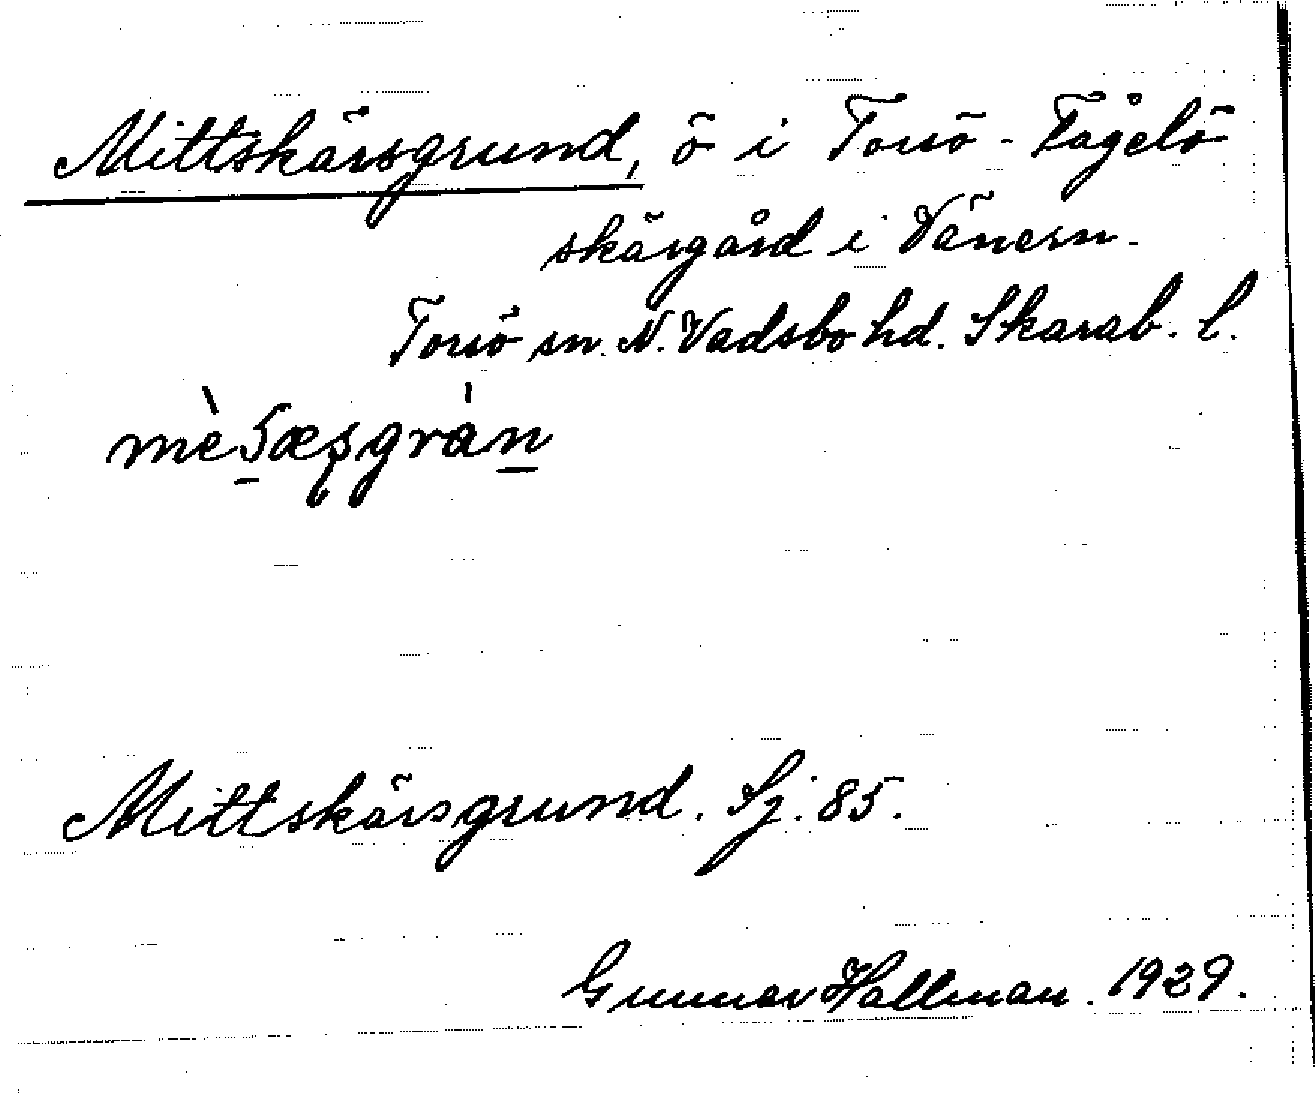 Mittskärsgrund, ö i Torsö - Fågelö
skärgård i Vänern.
Torsö sn. N. Vadsbo hd. Skarab. l.
Mittskärsgrund. Sj. 85.
Gunnar Hallman. 1929.